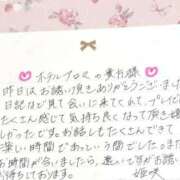 ホテルプロセの貴方様
昨日はお誘い頂きありがとうございました
日記など見て会いに来てくれて、プレイも
たくさん感じて気持ち良くなって頂き
嬉しかったです。お話もしたくさんできて
楽しい時間であっという間でした。また
お時間が合いましたら、違いもお誘い
お待ちしております。
姫咲